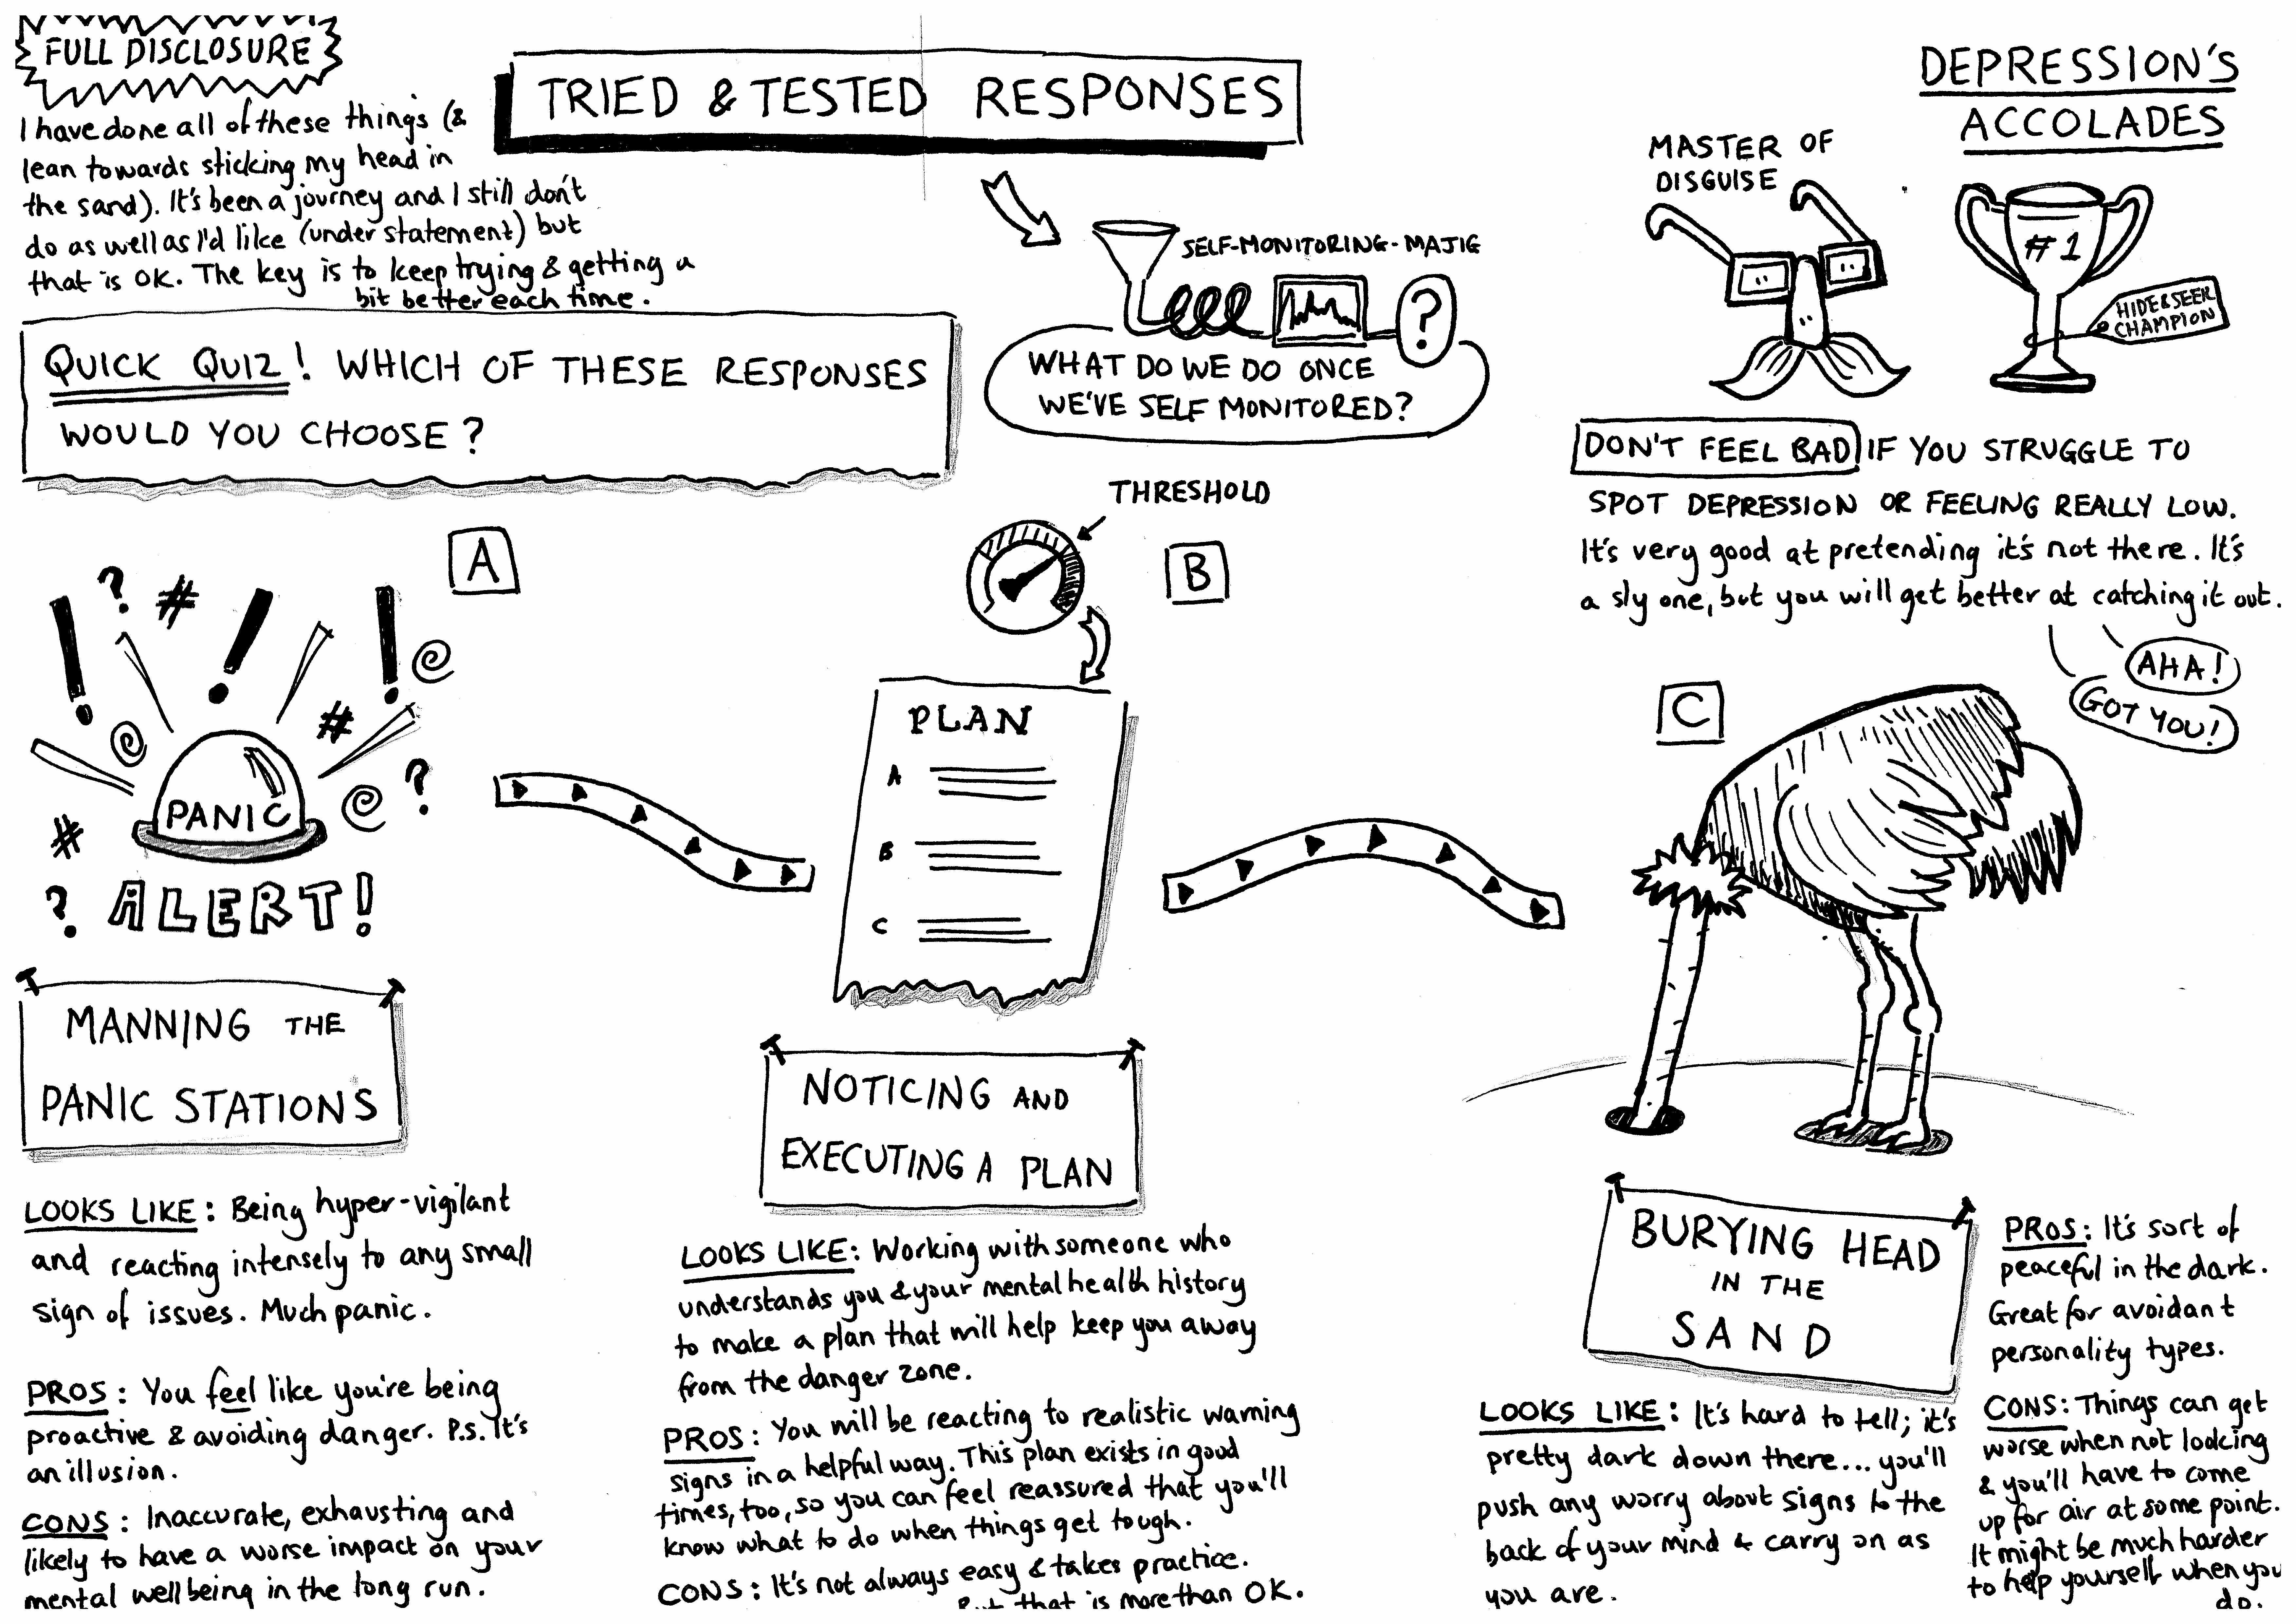 FULL DISCLOSURE
I have done all of these things (&
lean towards sticking my head in
the sand). It's been a journey and I still don't
do as well as I'd like (understatement) but
that is OK. The key is to keep trying & getting a
bit better each time.
TRIED & TESTED RESPONSES
SELF-MONITORING-MAJIG
?
WHAT DO WE DO ONCE
WE'VE SELF MONITORED?
DEPRESSION'S
ACCOLADES
MASTER OF
DISGUISE
#1
HIDE & SEEK
CHAMPION
DON'T FEEL BAD IF YOU STRUGGLE TO
SPOT DEPRESSION OR FEELING REALLY LOW.
It's very good at pretending it's not there. It's
a sly one, but you will get better at catching it out.
AHA!
GOT YOU!
QUICK QUIZ! WHICH OF THESE RESPONSES
WOULD YOU CHOOSE?
A
! ? # ! ! @
@ #
# @ ?
PANIC
? ALERT!
MANNING THE
PANIC STATIONS
LOOKS LIKE: Being hyper-vigilant
and reacting intensely to any small
sign of issues. Much panic.
PROS: You feel like you're being
proactive & avoiding danger. P.S. It's
an illusion.
CONS: Inaccurate, exhausting and
likely to have a worse impact on your
mental wellbeing in the long run.
THRESHOLD
B
PLAN
A
B
C
NOTICING AND
EXECUTING A PLAN
LOOKS LIKE: Working with someone who
understands you & your mental health history
to make a plan that will help keep you away
from the danger zone.
PROS: You will be reacting to realistic warning
signs in a helpful way. This plan exists in good
times, too, so you can feel reassured that you'll
know what to do when things get tough.
CONS: It's not always easy & takes practice.
But that is more than OK.
C
BURYING HEAD
IN THE
SAND
LOOKS LIKE: It's hard to tell; it's
pretty dark down there... you'll
push any worry about signs to the
back of your mind & carry on as
you are.
PROS: It's sort of
peaceful in the dark.
Great for avoidant
personality types.
CONS: Things can get
worse when not looking
& you'll have to come
up for air at some point.
It might be much harder
to help yourself when you
do.